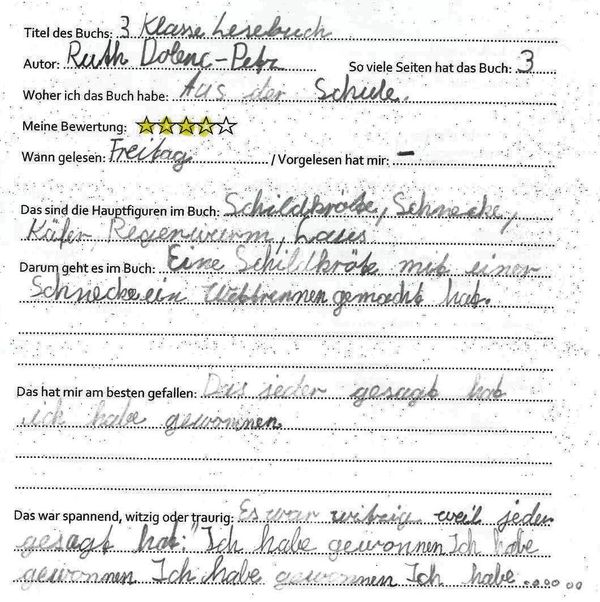 Titel des Buchs: 3 Klasse Lesebuch
Autor: Ruth Dolenc-Petz So viele Seiten hat das Buch: 3
Woher ich das Buch habe: Aus der Schule.
Meine Bewertung:
Wann gelesen: Freitag / Vorgelesen hat mir: –
Das sind die Hauptfiguren im Buch: Schildkröte, Schnecke,
Käfer, Regenwurm, Laus
Darum geht es im Buch: Eine Schildkröte mit einer
Schnecke ein Wettrennen gemacht hat.
Das hat mir am besten gefallen: Das jeder gesagt hat
ich habe gewonnen.
Das war spannend, witzig oder traurig: Es war witzig weil jeder
gesagt hat: "Ich habe gewonnen Ich habe
gewonnen Ich habe gewonnen Ich habe........